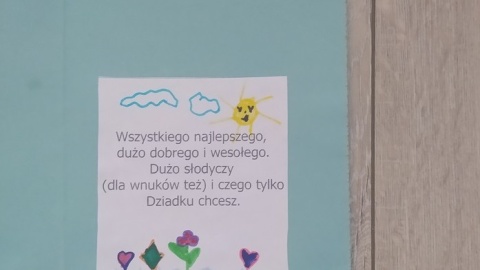 Wszystkiego najlepszego,
dużo dobrego i wesołego.
Dużo słodyczy
(dla wnuków też) i czego tylko
Dziadku chcesz.